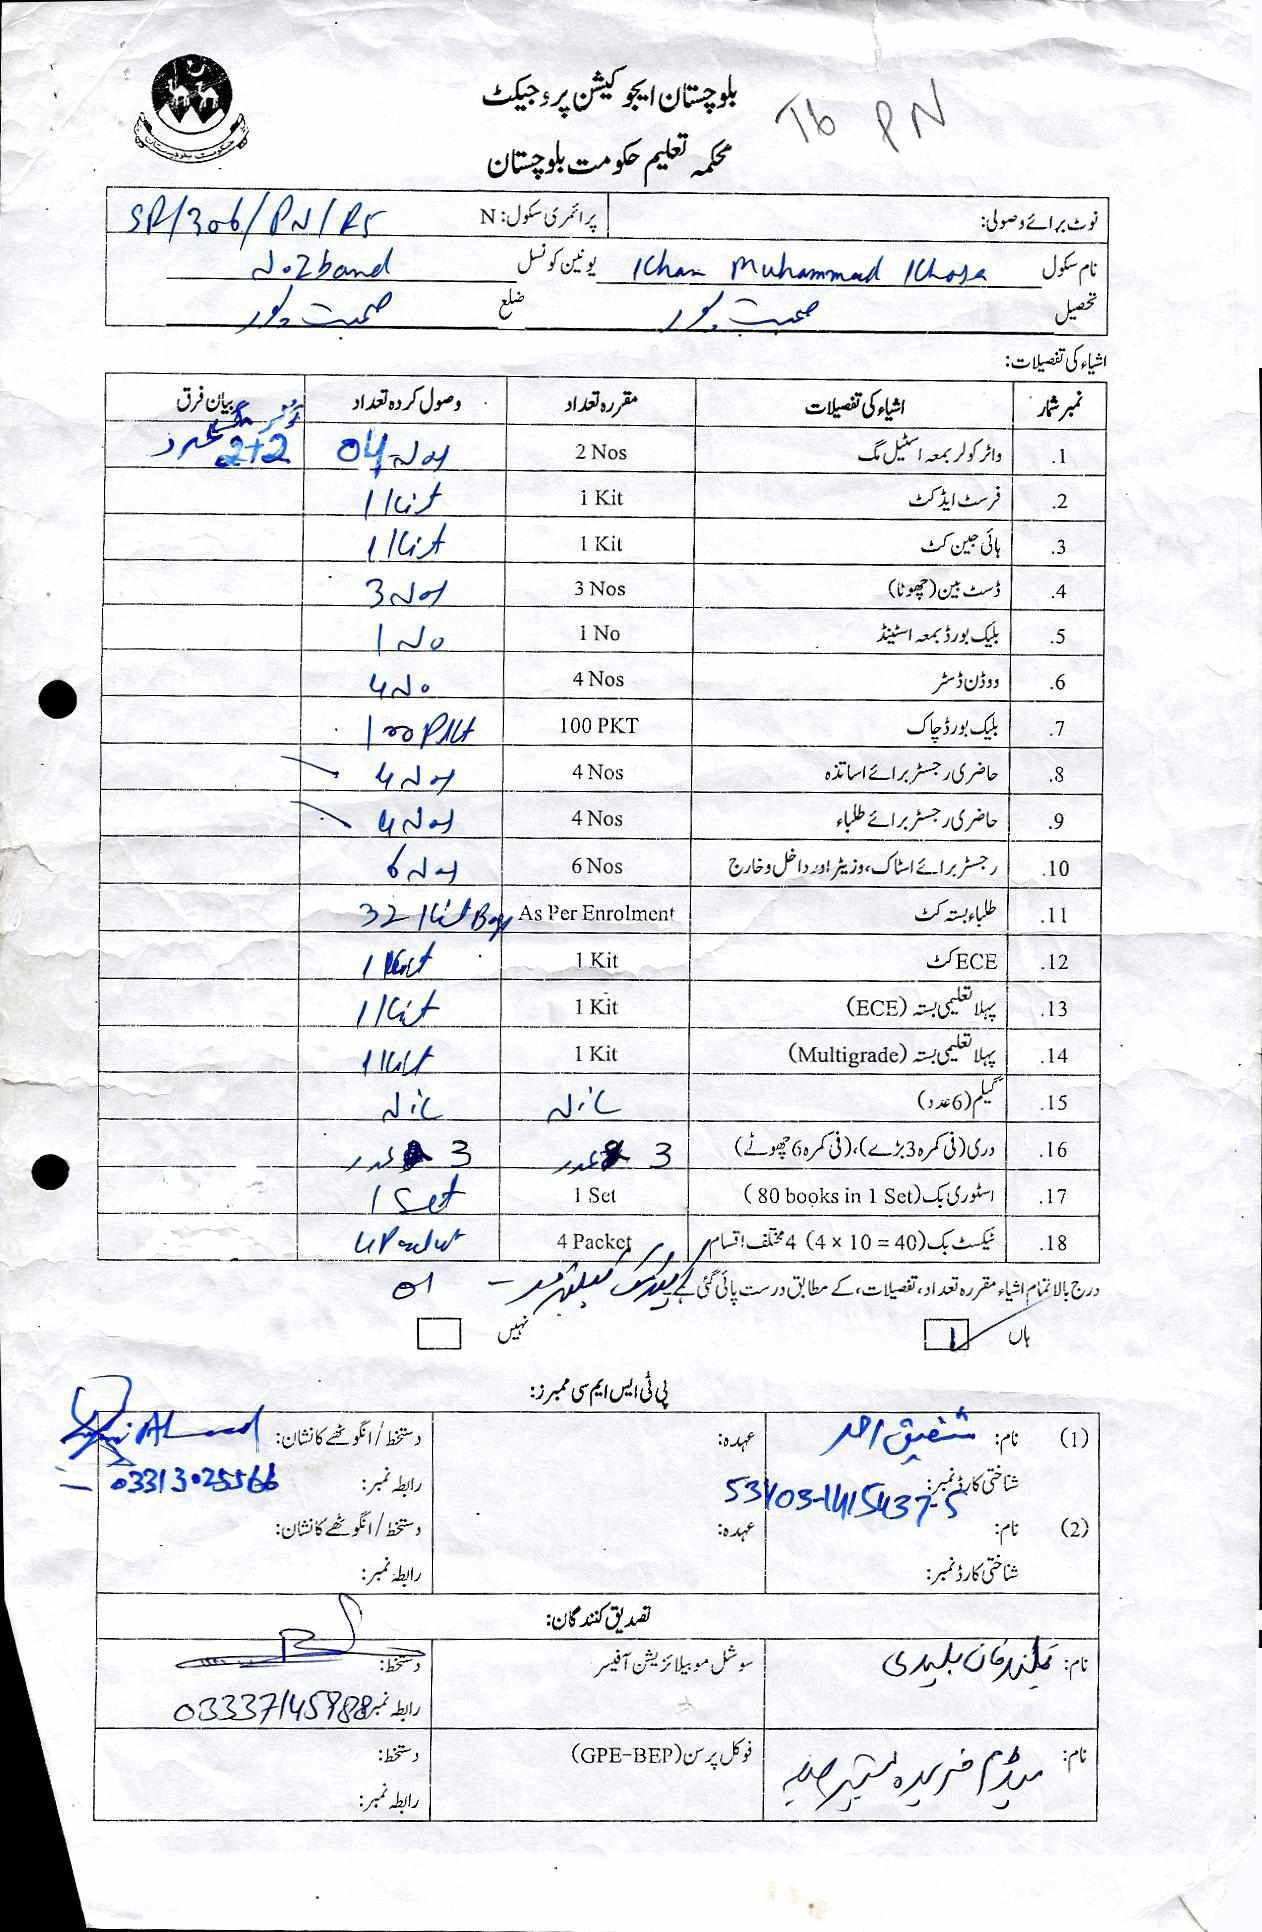 بلوچستان ایجوکیشن پروجیکٹ
Tb PN
محکمہ تعلیم حکومت بلوچستان
حکومت بلوچستان
نوٹ برائے وصولی: پرائمری سکول: N SP/306/PN/R5
نام سکول Khan Muhammad Khosa یونین کونسل Nozband
تحصیل صحبت پور ضلع صحبت پور
اشیاء کی تفصیلات:
نمبر شمار اشیاء کی تفصیلات مقررہ تعداد وصول کردہ تعداد بیان فرق
1. واٹر کولر بمعہ اسٹیل مگ 2 Nos 04 Nos 2+2 عدد
2. فرسٹ ایڈ کٹ 1 Kit 1 Kit
3. ہائی جین کٹ 1 Kit 1 Kit
4. ڈسٹ بین (چھوٹا) 3 Nos 3 Nos
5. بلیک بورڈ بمعہ اسٹینڈ 1 No 1 No
6. ووڈن ڈسٹر 4 Nos 4 No
7. بلیک بورڈ چاک 100 PKT 100 PKt
8. حاضری رجسٹر برائے اساتذہ 4 Nos 4 Nos
9. حاضری رجسٹر برائے طلباء 4 Nos 4 Nos
10. رجسٹر برائے اسٹاک، وزیٹر اور داخل و خارج 6 Nos 6 Nos
11. طلباء بستہ کٹ As Per Enrolment 32 Kit Bags
12. ECE کٹ 1 Kit 1 Kit
13. پہلا تعلیمی بستہ (ECE) 1 Kit 1 Kit
14. پہلا تعلیمی بستہ (Multigrade) 1 Kit 1 Kit
15. گلیم (6 عدد) Nil Nil
16. دری (فی کمرہ 3 بڑے)، (فی کمرہ 6 چھوٹے) 3 عدد 3 عدد
17. اسٹوری بک (80 books in 1 Set) 1 Set 1 Set
18. ٹیکسٹ بک (4 x 10 = 40) 4 مختلف اقسام 4 Packet 4 Packet
درج بالا تمام اشیاء مقررہ تعداد، تفصیلات، کے مطابق درست پائی گئی ہے 01
ہاں نہیں
پی ٹی ایس ایم سی ممبرز:
(1) نام: شفیق احمد عہدہ: دستخط / انگوٹھے کا نشان: Ahmed
شناختی کارڈ نمبر: 53403-1415437-5 رابطہ نمبر: 03313025566
(2) نام: عہدہ: دستخط / انگوٹھے کا نشان:
شناختی کارڈ نمبر: رابطہ نمبر:
تصدیق کنندگان:
نام: خان بلیدی سوشل موبیلائزیشن آفیسر دستخط:
رابطہ نمبر 03337145988
نام: میڈم فریدہ فوکل پرسن (GPE-BEP) دستخط:
رابطہ نمبر: